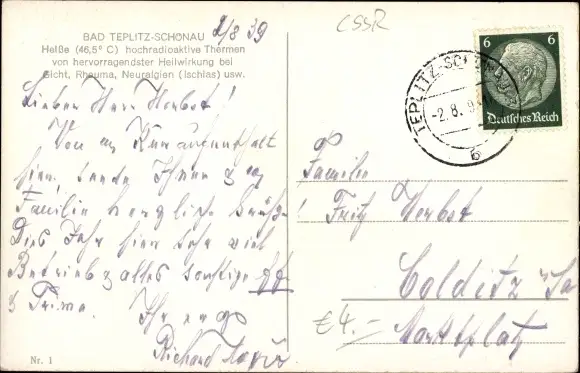 BAD TEPLITZ-SCHÖNAU
Heiße (46,5° C) hochradioaktive Thermen
von hervorragendster Heilwirkung bei
Gicht, Rheuma, Neuralgien (Ischias) usw.
2/8 39
Lieber Herr Herbst!
Von m Kuraufenthalt
hier, sende Ihnen & 
Familie herzliche Grüße
Dies Jahr hier sehr viel
Betrieb & alles sonstige ff
& Prima.
Ihr ergb
Richard
Nr. 1
CSSR
TEPLITZ-SCHÖNAU
-2.8.
b
6 6
Deutsches Reich
Familie
Fritz Herbst
Colditz i/Sa
Marktplatz
€4.-